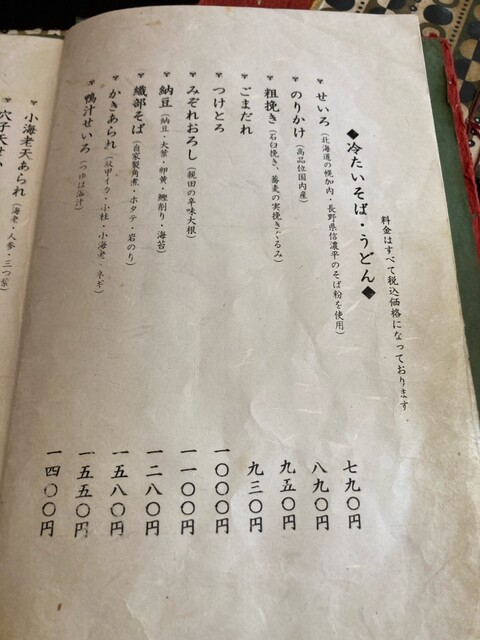 料金はすべて税込価格になっております
◆冷たいそば・うどん◆
せいろ(北海道の幌加内・長野県信濃平のそば粉を使用) 七九〇円
のりかけ(高品位国内産) 八九〇円
粗挽き(石臼挽き、蕎麦の実挽きぐるみ) 九五〇円
ごまだれ 九三〇円
つけとろ 一〇〇〇円
みぞれおろし(親田の辛味大根) 一一〇〇円
納豆(納豆・大葉・卵黄・鰹削り・海苔) 一二八〇円
織部そば(自家製角煮・ホタテ・岩のり) 一五八〇円
かきあられ(紋甲イカ・小柱・小海老、ネギ) 一五五〇円
鴨汁せいろ(つゆは温汁) 一四〇〇円
小海老天あられ(海老・人参・三つ葉)
穴子天せい